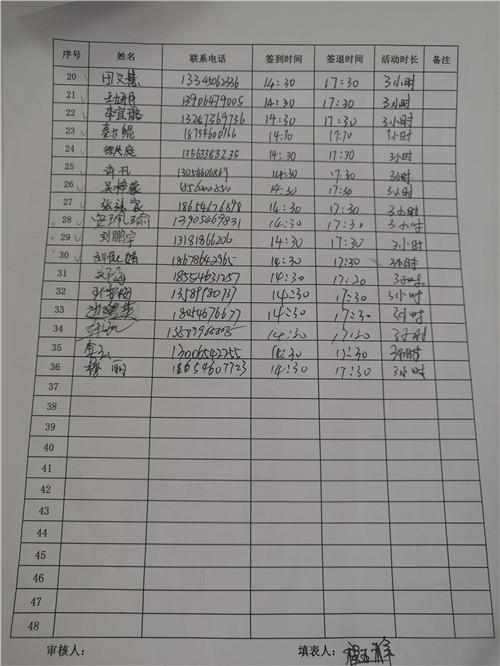 序号 姓名 联系电话 签到时间 签退时间 活动时长 备注
20 田文慧 13345062336 14:30 17:30 3小时
21 13906479005 14:30 17:30 3小时
22 李宜璐 13247369736 14:30 17:30 3小时
23 14:30 17:30 3小时
24 14:30 17:30 3小时
25 许孔 13054606869 14:30 17:30 3小时
26 吴梓蒙 14:30 17:30 3小时
27 18654676898 14:30 17:30 3小时
28 13905469831 14:30 17:30 3小时
29 刘鹏宇 13181866206 14:30 17:30 3小时
30 18678642965 14:30 17:30 3小时
31 18554631257 14:30 17:20 3小时
32 14:30 17:30 3小时
33 18054676677 14:30 17:30 3小时
34 14:30 17:20 3小时
35 13006542255 14:30 17:30 3小时
36 穆丽 18654607723 14:30 17:30 3小时
37
38
39
40
41
42
43
44
45
46
47
48
审核人： 填表人：